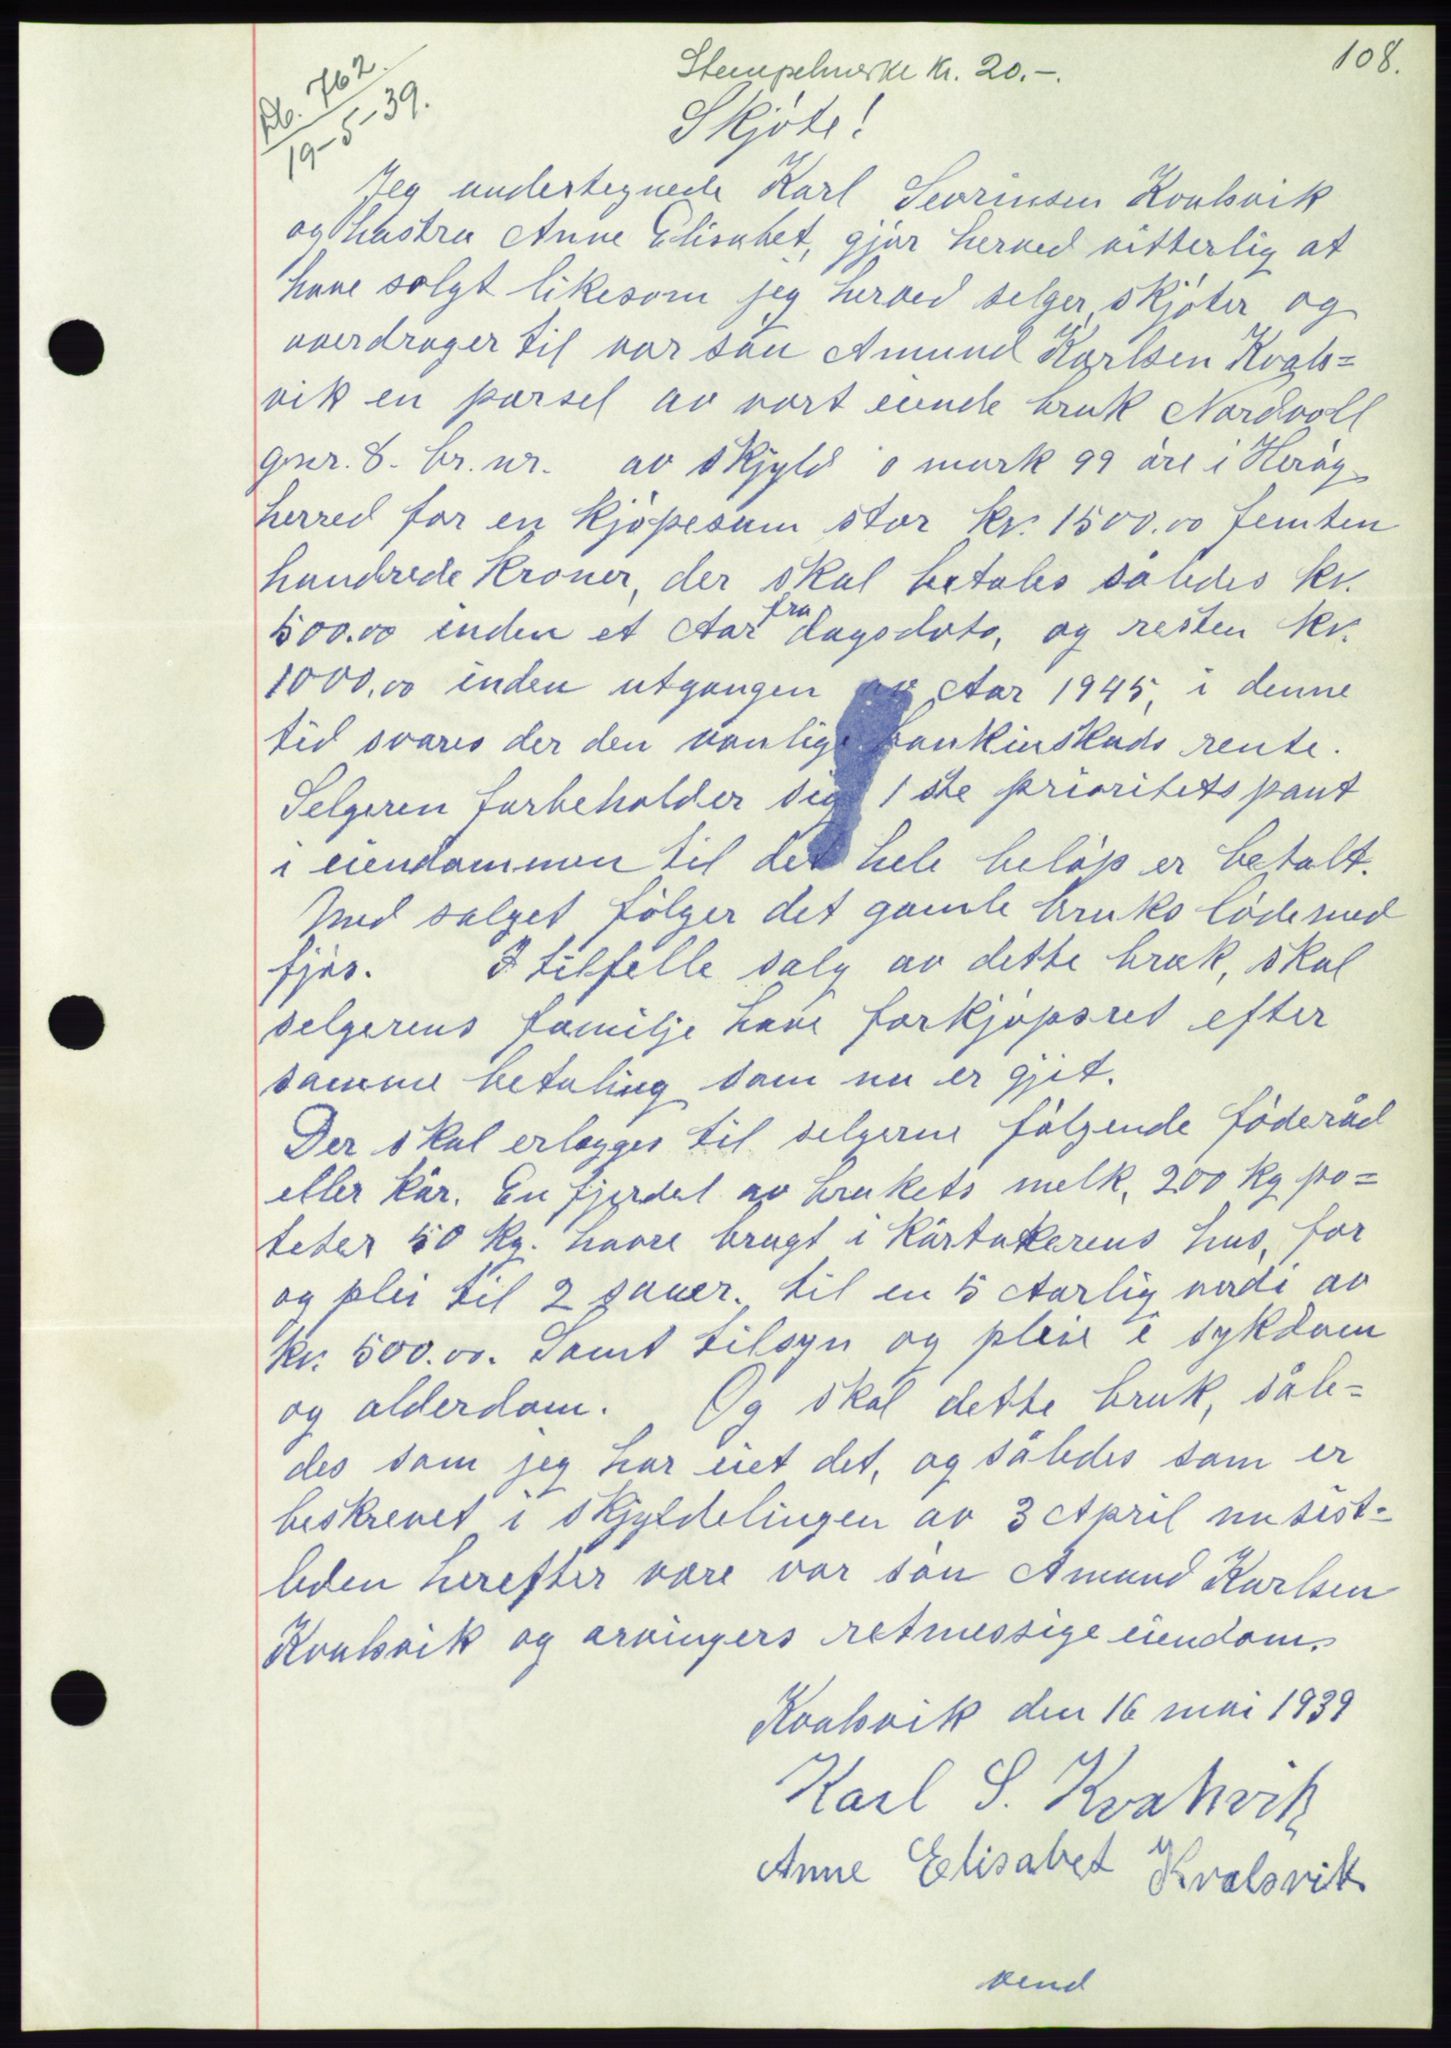 108.
Stempelmerke kr. 20.-.
Db. 762.
19-5-39.
Skjöte!
Jeg undertegnede Karl Sevrinsen Kvalsvik
og hustru Anne Elisabet, gjör herved vitterlig at
have solgt likesom jeg herved selger, skjöter og
overdrager til vor sön Amund Karlsen Kvals=
vik en parsel av vort eiende bruk Nordvoll
gnr. 8. br. nr. av skjyld 0 mark 99 öre i Heröy
herred for en kjöpesum stor kr. 1500.00 femten
hundrede kroner, der skal betales således kr.
500.00 inden et Aar fra dagsdato, og resten kr.
1000.00 inden utgangen av Aar 1945, i denne
tid svares der den vanlige bankinskuds rente.
Selgeren forbeholder sig 1 ste prioritets pant
i eiendommen til det hele belöp er betalt.
Med salget fölger det gamle bruks löde med
fjös. I tilfelle salg av dette bruk, skal
selgerens familje have forkjöpsret efter
samme betaling som nu er gjit.
Der skal erlægges til selgerne fölgende föderåd
eller kår. En fjerdel av brukets melk, 200 kg po=
teter 50 kg. havre bragt i kårtakerens hus, for
og plei til 2 sauer. til en 5 Aarlig verdi av
kr. 500.00. Samt tilsyn og pleie i sykdom
og alderdom. Og skal dette bruk, såle=
des som jeg har eiet det, og således som er
beskrevet i skjyldelingen av 3 April nu sist=
leden herefter være vor sön Amund Karlsen
Kvalsvik og arvingers retmessige eiendom.
Kvalsvik den 16 mai 1939
Karl S. Kvalsvik
Anne Elisabet Kvalsvik
vend